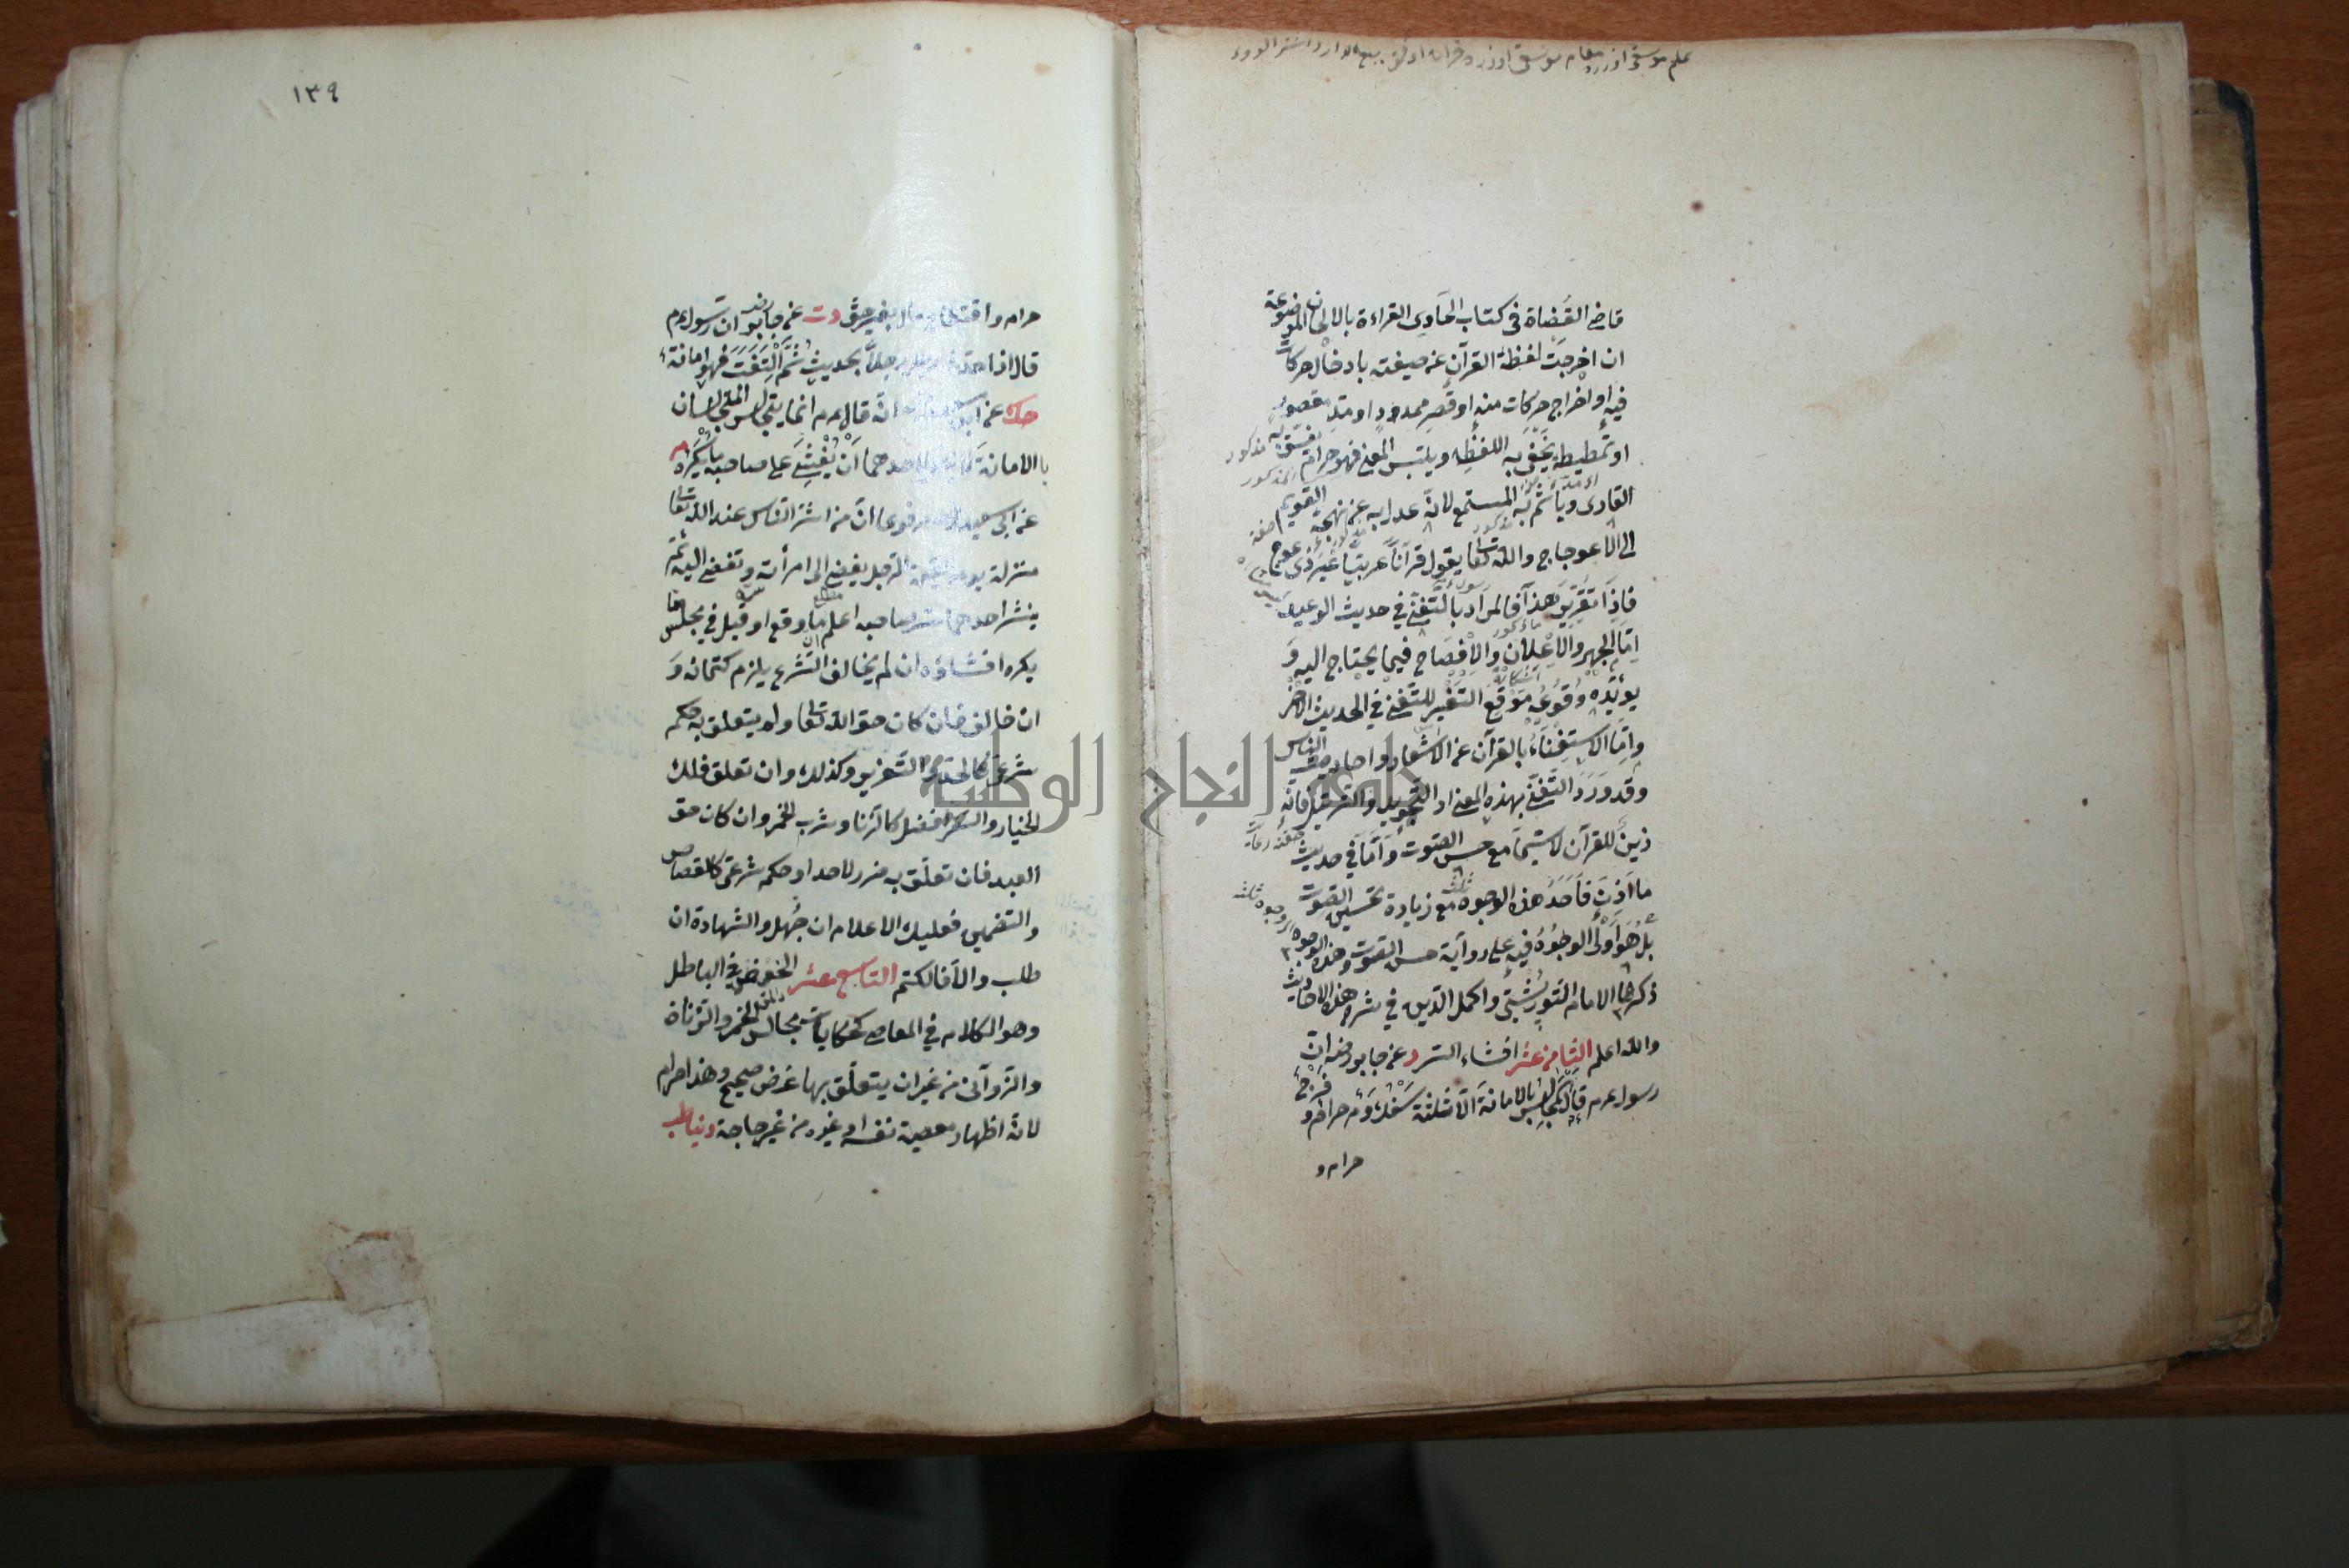 قاضي القضاة في كتاب الحاوي القراءة بالالحان الموضوعة
ان اخرجت لفظة القرآن عن صيغته بادخال حركات
فيه او اخراج حركات منه او قصر ممدود او مد مقصور
او تمطيط يخفى به اللفظ ويلتبس المعنى فهو حرام يفسق به
القارى ويأثم به المستمع لانه عدل به عن نهجه القويم
الى الاعوجاج والله تعا يقول قرآنا عربيا غير ذى عوج
فاذا تقرر هذا فالمراد بالتغنى في حديث الوعيد
اما الجهر والاعلان والافصاح فيما يحتاج اليه و
يؤيده وقوع موقع التغير للتغنى في الحديث الاخر
واما الاستغناء بالقرآن عن الاشعار واحاديث الناس
وقد ورد التغنى بهذه المعنى او التجويد والترتيل فانه
زين للقرآن لا سيما مع حسن الصوت واما في حديث
ما اذن فاحد هذه الوجوه مع زيادة تحسين الصوت
بل هو اولى الوجوه فيه على رواية حسن الصوت وهذه الوجوه
ذكرها الامام التورپشتى واكمل الدين في شرح هذه الاحاديث
والله اعلم الثامن عشر افشاء السر د عن جابر رضه ان
رسول عم م قال المجالس بالامانة الا ثلثة سفك دم حرام او فرج
حرام و
١٣٩
حرام واقتطاع مال بغير حق دت عن جابر رضه ان رسول عم م
قال اذا حدث رجل رجلا بحديث ثم التفت فهو امانة
حك عن ابن انه قال عم م انما يتجالس المتجالسان
بالامانة لاحدهما ان يفشى على صاحبه ما يكره م
عن ابى سعيد مرفوعا ان من اشر الناس عند الله تعا
منزلة يوم القيمة الرجل يفضى الى امرأته وتفضى اليه ثم
ينشر احدهما سر صاحبه اعلم ان ما وقع او قيل في مجلس مما
يكره افشاؤه ان لم يخالف الشرع يلزم كتمانه و
ان خالف فان كان حق الله تعا ولم يتعلق به حكم
شرعى كالحد والتعزير وكذلك وان تعلق فلك
الخيار والستر افضل كالزنا وشرب الخمر وان كان حق
العبد فان تعلق به ضرر لاحد او حكم شرعى كالقصاص
والتضمين فعليك الاعلام ان جهل والشهادة ان
طلب والا فالكتم التاسع عشر الخوض في الباطل
وهو الكلام في المعاصى كحكايات مجالس الخمر والزناة
والزوانى من غير ان يتعلق بها غرض صحيح وهذا حرام
لانه اظهار معصية نفسه او غيره من غير حاجة دنيا طب
جامعة النجاح الوطنية